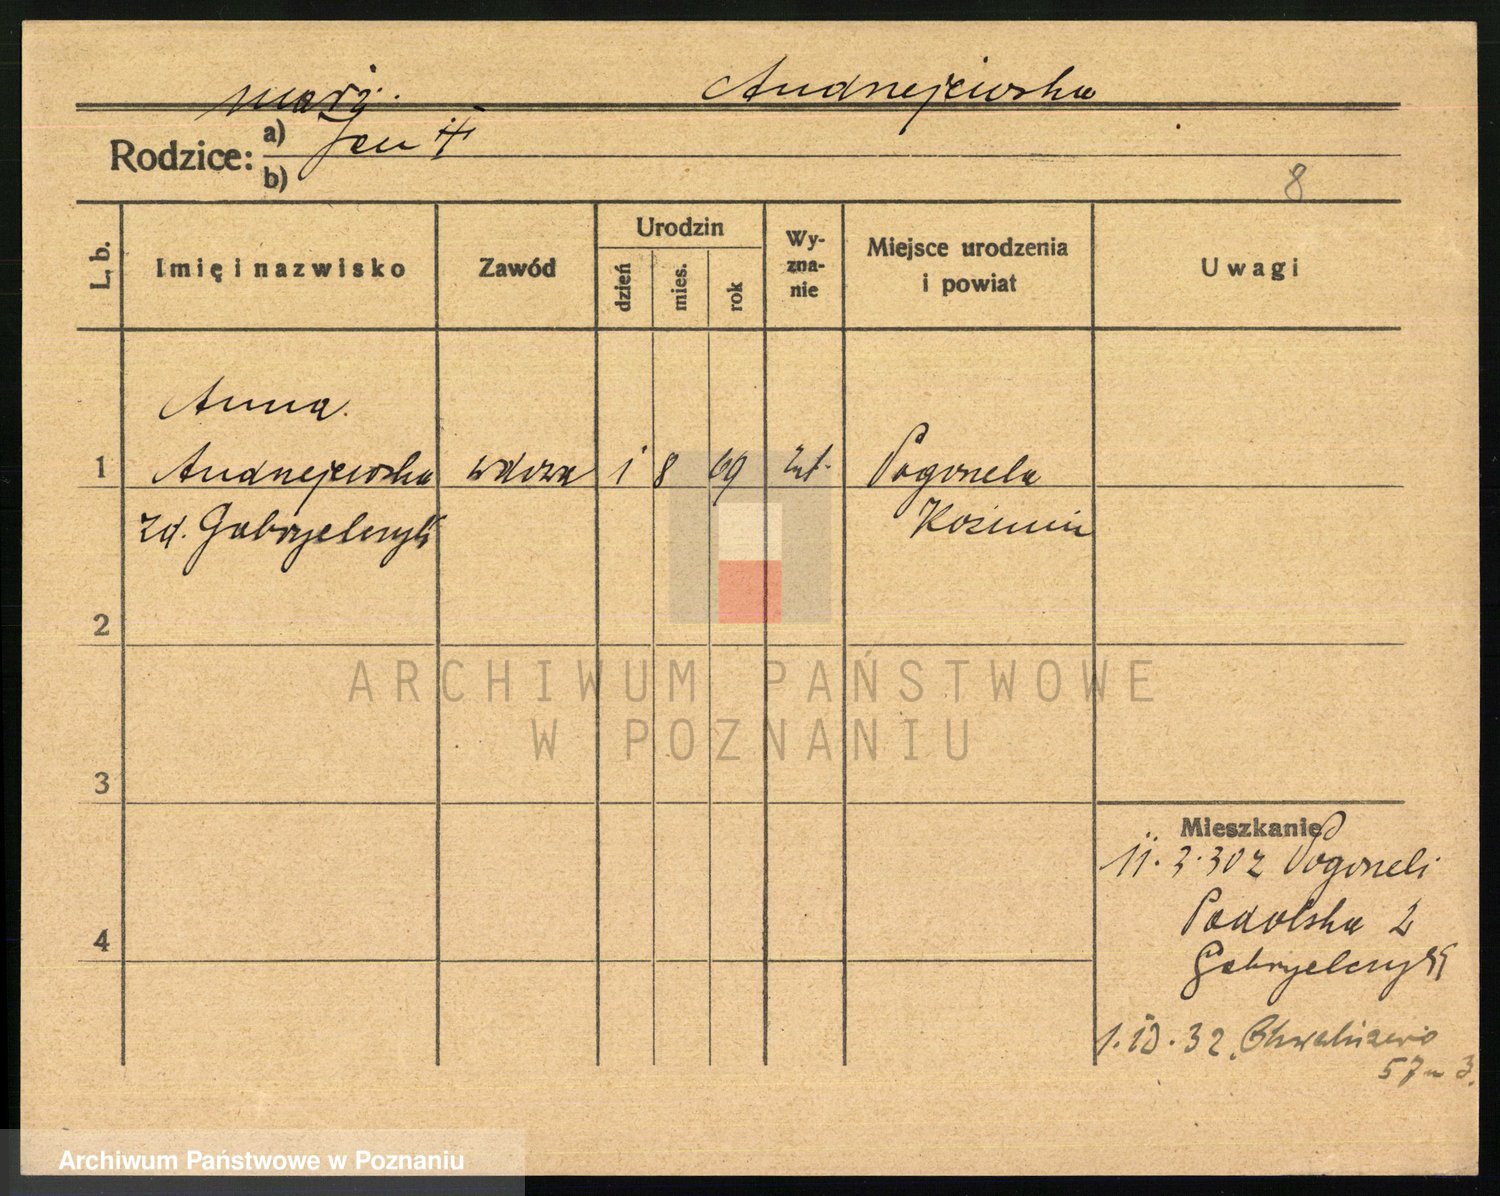 Andrzejewska
mąż.
Rodzice: a) Jan
b)
8
L. b.
Imię i nazwisko
Zawód
Urodzin
dzień
mies.
rok
Wy-
zna-
nie
Miejsce urodzenia
i powiat
Uwagi
Anna
1 Andrzejewska wdowa 1 8 69 kat. Pogorzela
zd. Gabryelczyk Koźmin
2
3
4
ARCHIWUM PAŃSTWOWE
W POZNANIU
Mieszkanie
11.3.30 z Pogorzeli
Podolska 2
Gabryelczyk
1.10.32. Chwaliszewo
57 m 3.
Archiwum Państwowe w Poznaniu